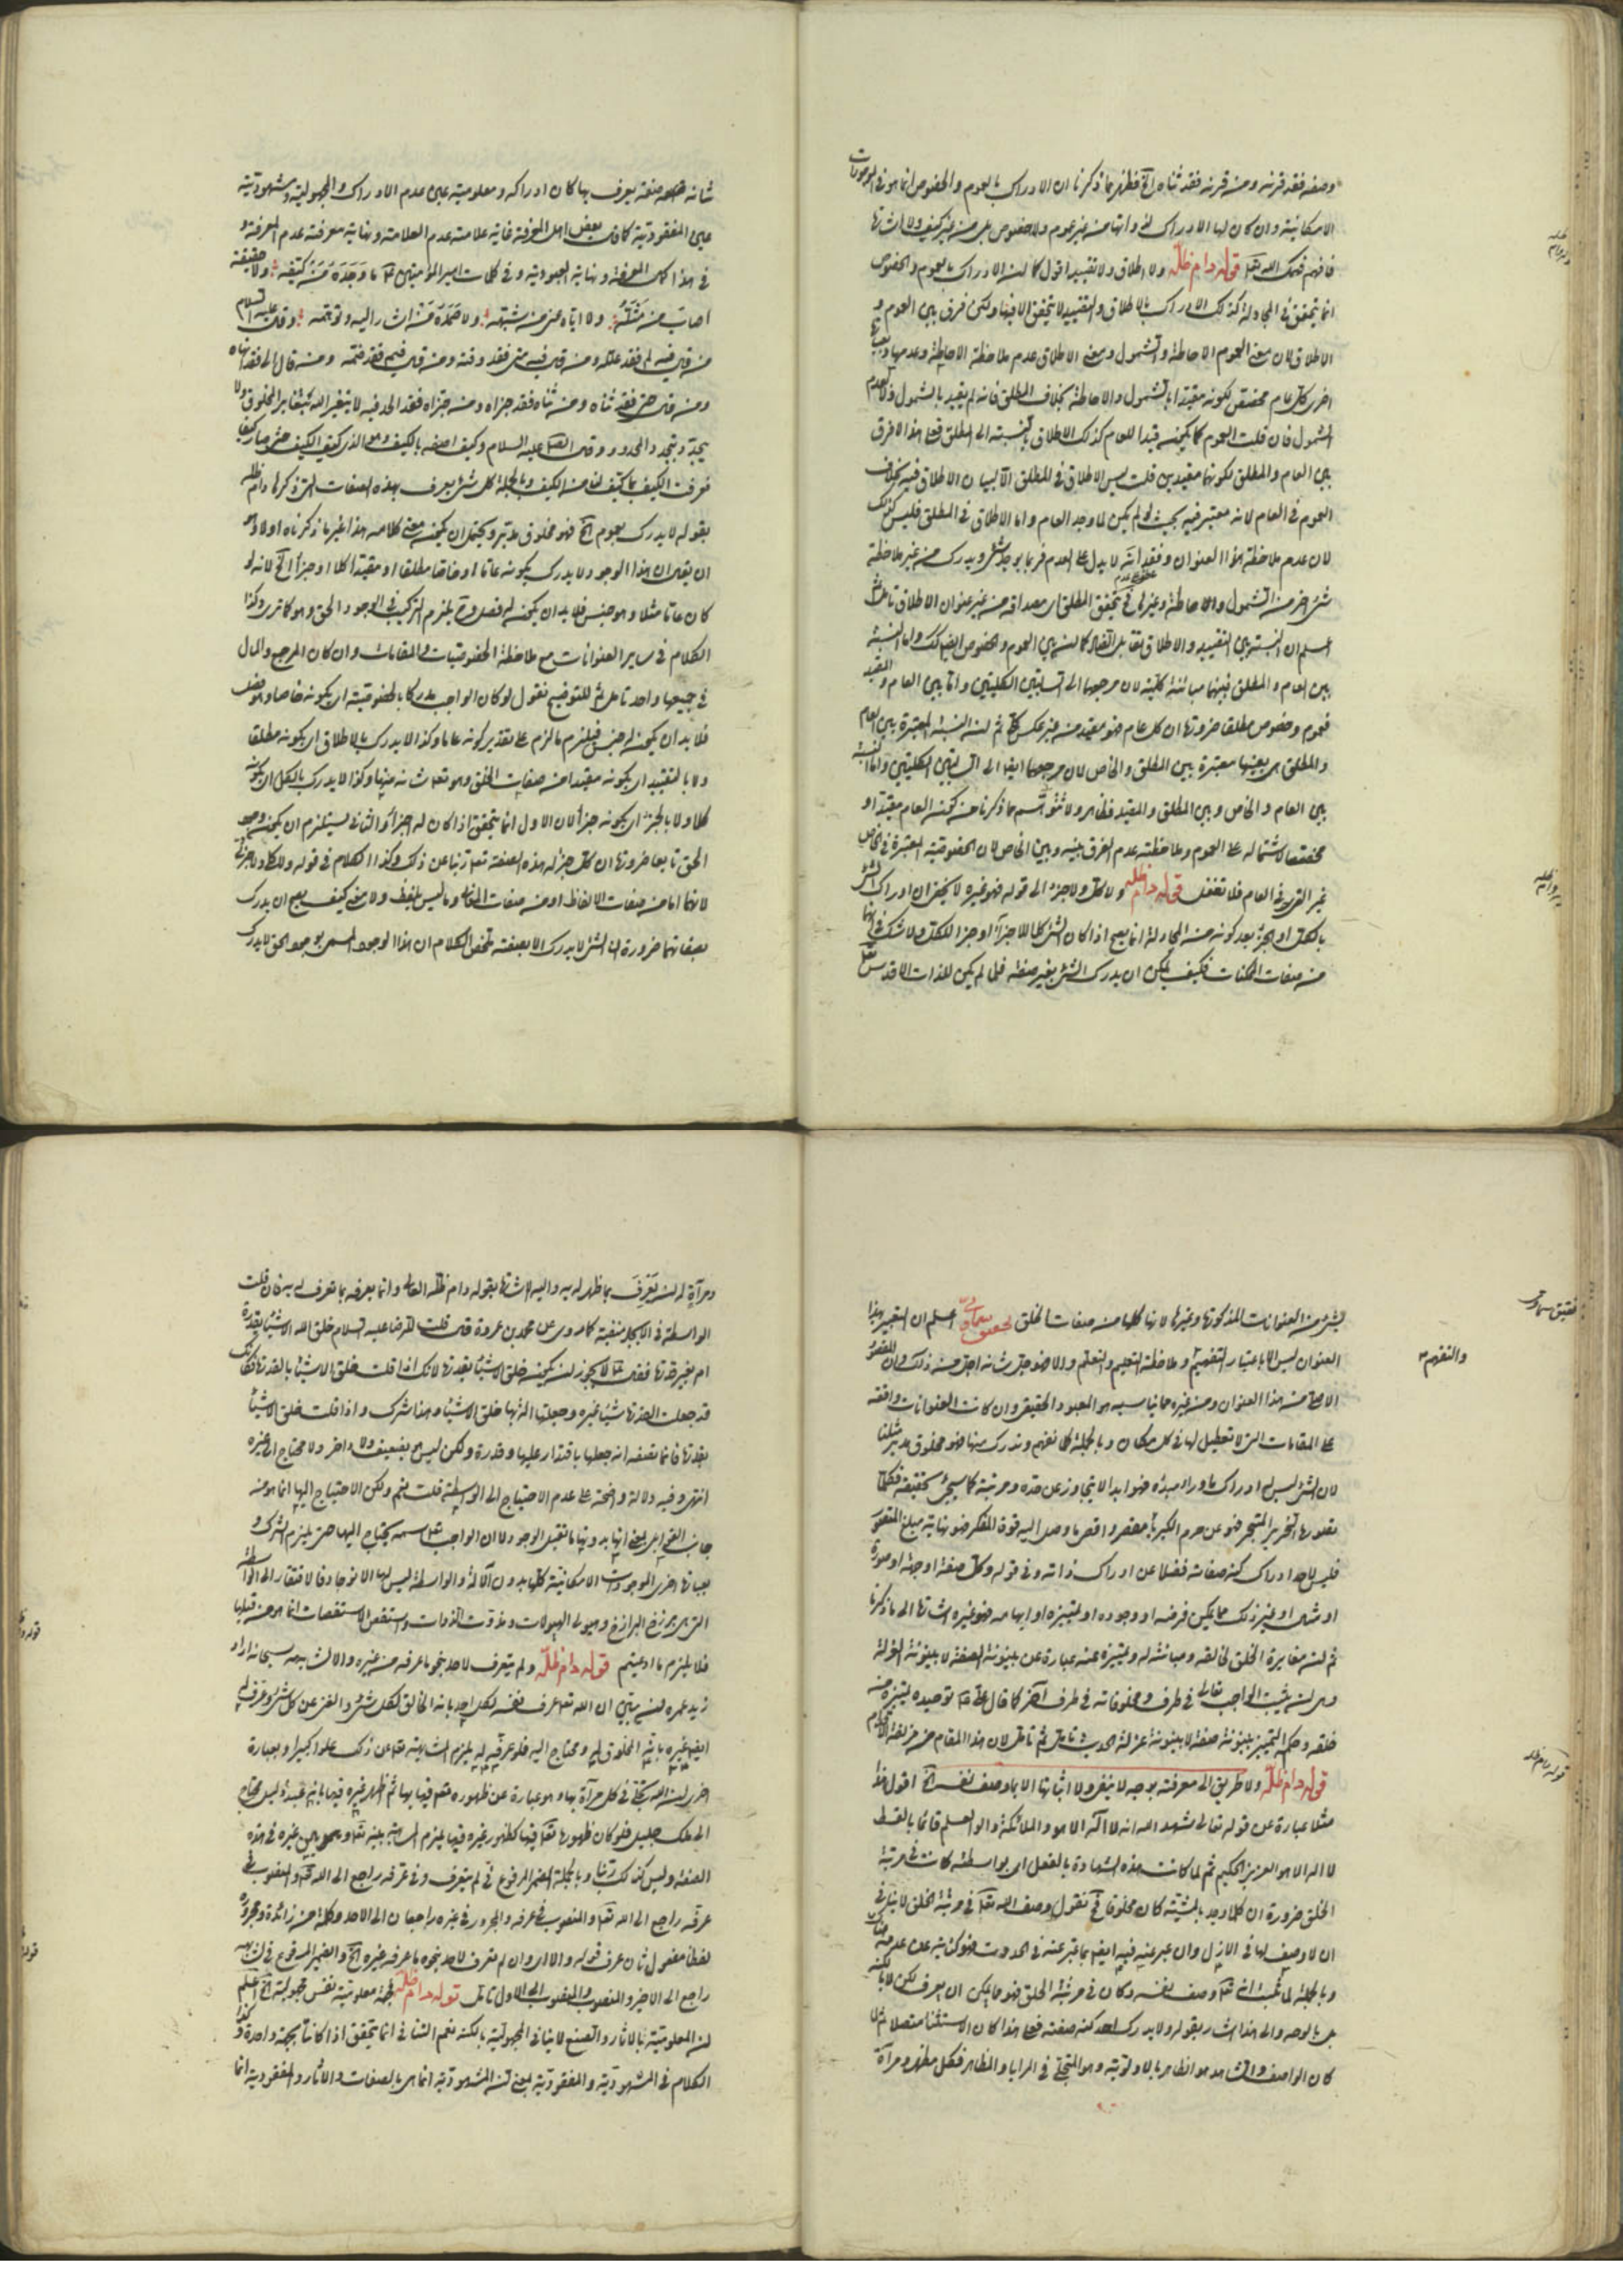 وصفه فقد قرنه ومن قرنه فقد ثناه الخ فظهر مما ذكرنا ان الادراك بالعموم والخصوص انما هو في الموجودات
الامكانية وان كان لها الادراك من غير عموم ولا خصوص بل من غير كيف ولا اشارة
فافهم فهمك الله تعالى قوله دام ظله ولا اطلاق ولا تقييد اقول كما ان الادراك بالعموم والخصوص
انما يتحقق في كذلك الادراك بالاطلاق والتقييد لا يتحقق الا فيها ولكن فرق بين العموم و
الاطلاق لان معنى العموم الاحاطة والشمول ومعنى الاطلاق عدم ملاحظة الاحاطة وعدمها وبعبارة
اخرى كل عام مخصص لكونه مقيدا بالشمول والاحاطة بخلاف المطلق فانه لم يقيد بالشمول ولا بعدم
الشمول فان قلت العموم كما يكون قيدا للعام كذلك الاطلاق بالنسبة الى المطلق فعلى هذا لا فرق
بين العام والمطلق لكونهما مقيدين قلت ليس الاطلاق في المطلق الا لبيان الاطلاق فيه بخلاف
العموم في العام لانه معتبر فيه بحيث لو لم يكن لما وجد العام واما الاطلاق في المطلق فليس كذلك
لان عدم ملاحظة هذا العنوان وفقدانه لا يدل على العدم فربما يوجد شيء ويدرك من غير ملاحظة
شيء اخر من الشمول والاحاطة وغيرها في تحقق المطلق اي مصداقه من غير عنوان الاطلاق تأمل ثم
اعلم ان النسبة بين التقييد والاطلاق تقابل التضاد كما ان بين العموم والخصوص ايضا كذلك واما النسبة
بين العام والمطلق فبينهما مباينة كلية لان مرجعها الى السالبتين الكليتين واما بين العام والمقيد
فعموم وخصوص مطلقا ضرورة ان كل عام فهو مقيد من غير عكس كلي ثم ان النسبة المعتبرة بين العام
والمطلق هي بعينها معتبرة بين المطلق والخاص لان مرجعهما ايضا الى السالبتين الكليتين واما النسبة
بين العام والخاص وبين المطلق والمقيد فظاهر ولا تتوهم مما ذكرنا من كون العام مقيدا و
مخصصا لاشتماله على العموم وملاحظته عدم الفرق بينه وبين الخاص لان الخصوصية المعتبرة في الخاص
غير في العام فلا تغفل قوله دام ظله ولا كل ولا جزء الى قوله فهو غيره لا يخفى ان ادراك الشيء
بالكل او الجزء بعد كونه من انما يصح اذا كان الشيء كلا للاجزاء او جزءا للكل ولا شك في انهما
من صفات الممكنات فكيف يمكن ان يدرك الشيء بغير صفته فلما لم يكن للذات الاقدس تعالى
شانه صفة يعرف بها كان ادراكه ومعلوميته عين عدم الادراك والمجهولية ومشهوديته
عين المفقودية كما قال بعض اهل المعرفة غاية علامته عدم العلامة ونهاية معرفته عدم المعرفة و
في هذا كمال المعرفة ونهاية العبودية وفي كلمات امير المؤمنين ع ما وحده من كيفه ولا حقيقته
اصاب من مثله ولا اياه عنى من شبهه ولا صمده من اشار اليه وتوهمه وقال عليه السلام
من قال فيم فقد علله ومن قال متى فقد وقته ومن قال فيم فقد ضمنه ومن قال الى فقد انهاه
ومن قال حتى فقد ثناه ومن ثناه فقد جزاه ومن جزاه فقد الحد فيه لا يتغير الله بتغاير المخلوق ولا
يتحدد بتحدد المحدود وقال الرضا عليه السلام وكيف اصفه بالكيف وهو الذي كيف الكيف حتى صار كيفا
فعرفت الكيف بما كيف لنا من الكيف وبالجملة كل شيء يعرف بهذه الصفات التي ذكرها دام ظله
بقوله لا يدرك بعموم الخ فهو مخلوق ويحتمل ان يكون معنى كلامه هذا غير ما ذكرناه اولا وهو
ان يقال ان هذا الوجود لا يدرك بكونه عاما او خاصا مطلقا او مقيدا كلا او جزءا الخ لانه لو
كان عاما مثلا وهو جنس فلا بد ان يكون له فصل و يلزم التركيب في الوجود الحق وهو كما ترى وكذا
الكلام في ساير العنوانات مع ملاحظة الخصوصيات والمقامات وان كان المرجع والمال
في جميعها واحد تأمل ثم للتوضيح نقول لو كان الواجب مدركا بالخصوصية اي بكونه خاصا وهو فصل
فلا بد ان يكون له جنس فيلزم ما لزم على تقدير كونه عاما وكذا لا يدرك بالاطلاق اي بكونه مطلقا
ولا بالتقييد اي بكونه مقيدا من صفات الخلق وهو تعالى شانه منها وكذا لا يدرك بالكل اي بكونه
كلا ولا بالجزء اي بكونه جزءا لان الاول انما يتحقق اذا كان له اجزاء والثاني يستلزم ان يكون وجود
الحق تابعا ضرورة ان كل جزء له هذه الصفة تعالى ربنا عن ذلك وكذا الكلام في قوله ولا كلي ولا جزئي
لانهما اما من صفات الالفاظ او من صفات المعاني وما ليس بلفظ ولا معنى كيف يصح ان يدرك
بصفاتهما ضرورة ان الشيء لا يدرك الا بصفته تلخص الكلام ان هذا الوجود المسمى بوجود الحق لا يدرك
بشيء من العنوانات المذكورة وغيرها لانها كلها من صفات الخلق تحقيق سماوي اعلم ان التعبير بهذا
العنوان ليس الا باعتبار التفهيم وملاحظة التعليم والتعلم والا فهو جل شانه اجل من ذلك وان المقصود
والتفهم
الاصلي من هذا العنوان ومن غيره مما يناسبه هو المعبود الحقيقي وان كانت العنوانات واقعة
على المقامات التي لا تعطيل لها في كل مكان وبالجملة كل ما نفهم وندرك منها فهو مخلوق مثلنا
لان الشيء ليس له ادراك ما وراء مبدئه فهو ابدا لا يتجاوز عن حده ومرتبته كما سيجيء تحقيقه فكلما
تصورها النحرير المتبحر فهو عن حرم الكبرياء مقصر واقصى ما وصل اليه قوة المفكر فهو نهاية مبلغ المتصور
فليس لاحد ادراك كنه صفاته فضلا عن ادراك ذاته وفي قوله وكل صفة او جهة او صورة
او مثال او غير ذلك مما يمكن فرضه او وجوده او تمييزه او ابهامه فهو غيره اشارة الى ما ذكرنا
ثم ان مغايرة الخلق لخالقه ومباينته له وتمييزه عنه عبارة عن بينونة الصفة لا بينونة العزلة
وهي ان يثبت الواجب تعالى في طرف ومخلوقاته في طرف آخر كما قال علي ع توحيده تمييزه من
خلقه وحكم التمييز بينونة صفة لا بينونة عزلة الحديث تأمل ثم تأمل لان هذا المقام من مزلقة الاقدام
قوله دام ظله ولا طريق الى معرفته بوجه لا بنفي ولا اثبات الا بما وصف نفسه الخ اقول هذا
مثلا عبارة عن قوله تعالى شهد الله انه لا اله الا هو والملائكة واولوا العلم قائما بالقسط
لا اله الا هو العزيز الحكيم ثم لما كانت هذه الشهادة بالفعل اي بواسطته كانت في مرتبة
الخلق ضرورة ان كلما وجد بالمشية كان مخلوقا فح نقول وصف الله تعالى في مرتبة الخلق لا ينافي
ان لا وصف لها في الازل وان عبر عنه فيه ايضا بما عبر عنه في الحدوث فهو كناية عن عدمه
وبالجملة لما ثبت انه تعالى وصف نفسه وكان في مرتبة الخلق فهو مما يمكن ان يعرف لكن لا بالكنه
بل بالوجه والى هذا اشار بقوله ولا يدرك احد كنه صفته فعلى هذا كان الاستثناء متصلا ثم لما
كان الواصف والشاهد هو الظاهر بالالوهية وهو المتجلي في المرايا والمظاهر فكل مظهر ومرآة
ومرآة له ان يعرف بما ظهر له به واليه الاشارة بقوله دام ظله العالي وانما يعرفه بما تعرف له به فان قلت
الواسطة في الايجاد منفية كما روى عن محمد بن عروة قال قلت للرضا عليه السلام خلق الله الاشياء بقدرة
ام بغير قدرة فقال ع لا يجوز ان يكون خلق الاشياء بقدرة لانك اذا قلت خلق الاشياء بالقدرة فكانك
قد جعلت القدرة شيئا غيره وجعلتها آلة بها خلق الاشياء وهذا شرك واذا قلت خلق الاشياء
بقدرة فانما تصفه انه جعلها باقتدار عليها وقدرة ولكن ليس هو بضعيف ولا عاجز ولا محتاج الى غيره
انتهى وفيه دلالة واضحة على عدم الاحتياج الى الواسطة قلت نعم ولكن الاحتياج اليها انما هو من
جانب القوابل بمعنى انها بدونها ما تقبل الوجود لا ان الواجب تعالى اسمه يحتاج اليها حتى يلزم الشرك و
بعبارة اخرى الموجودات الامكانية كلها بدون الآلة والواسطة ليس لها الا فالافتقار الى الواسطة
التي هي برزخ البرازخ وهيولى الهيولات ومادة المواد واسطقس الاسطقسات انما هو من قبلها
فلا يلزم ما ادعيتم قوله دام ظله ولم يتعرف لاحد بنحو ما عرفه من غيره والا لشابهه سبحانه اراد
زيد عمره ان يبين ان الله تعالى عرف نفسه لكل احد بانه الخالق لكل شيء والغني عن كل شيء وعرف له
ايضا غيره بانه المخلوق له ومحتاج اليه فلو عرفه به يلزم المشابهة تعالى عن ذلك علوا كبيرا وبعبارة
اخرى ان الله تجلى في كل مرآة بها وهو عبارة عن ظهوره فيها بها ثم ظهر غيره فيها بانه عبد ذليل محتاج
الى ملك جليل فلو كان ظهوره تعالى فيها كظهور غيره فيها يلزم المشابهة بينه تعالى وبين غيره في هذه
الصفة وليس كذلك ربنا وبالجملة الضمير المرفوع في لم يتعرف وفي عرفه راجع الى الله تعالى والمنصوب في
عرفه راجع الى الله تعالى والمنصوب في عرفه والمجرور في غيره راجعان الى الاحد وكلمة من زائدة ومجرورها
لفظا مفعول ثان عرف قوله والا اي وان لم يتعرف لاحد بنحو ما عرفه غيره الخ والضمير المرفوع في لشابهه
راجع الى الاخير والمنصوب الى الاول تأمل قوله دام ظله فجهة معلوميته نفس مجهوليته الخ اعلم
ان المعلومية بالاثار والصنع لا ينافي المجهولية بالكنه نعم التنافي انما يتحقق اذا كانتا بجهة واحدة وكذا
الكلام في المشهودية والمفقودية بمعنى ان المشهودية انما هي بالصفات والاثار والمفقودية انما